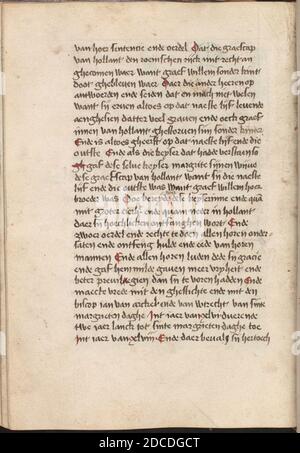 van hoer sentencie ende oerdel Dat die graefscap
van hollant den roemschen rijck mit recht an
ghecomen waer want graef willem sonder kint
doot ghebleuen waer Daer die ander heeren op
antwoerden ende seiden dat en mach niet wesen
want si eruen altoes op dat naeste lijf leuende
aenghesien datter veel grauen ende oeck graef
innen van hollant ghestoruen sijn sonder kinder
Ende is altoes gheerft op dat naeste lijf ende die
outste Ende als die keyser dat hadde verstaen so
gaf die selue keyser margrite sijnen wiue
dese graefscap van hollant want si die naeste
lijf ende die outste was want graef willem hoer
broeder was Doe
mit groter ende in hollant
daer si hoechliken ontfanghen wort Ende
swoer oerdel ende rechte te doen allen horen onder
saten ende ontfeng hulde ende eede van horen
mannen Ende allen horen luden dede si gracie
ende gaf hem milde gauen meer vryheit ende
beter preuilegien dan si te voren hadden Ende
maecte vrede mit den ghestichte ende mit den
biscop ian van arckel ende van vtrecht van sinte
margrieten daghe Int iaer van xlvi duerende
twe iaer lanck tot sinte margrieten daghe toe
Int iaer van xlviii Ende daer beual si hertoch
alamy